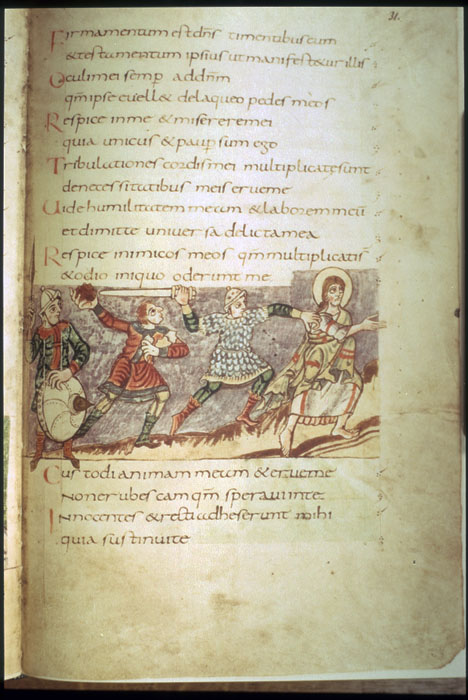 31.
Firmamentum est dn̄s timentibus eum
& testamentum ipsius ut manifest&ur illis
Oculi mei semp̄ ad dn̄m
qm̄ ipse euell& de laqueo pedes meos
Respice in me & miserere mei
quia unicus & paup̄ sum ego
Tribulationes cordis mei multiplicate sunt
de necessitatibus meis erue me
Uide humilitatem meam & laborem meū
et dimitte uniuersa delicta mea
Respice inimicos meos qm̄ multiplicati s̄
& odio iniquo oderunt me
Custodi animam meam & erue me
Non erubescam qm̄ speraui in te
Innocentes & recti adheserunt mihi
quia sustinui te